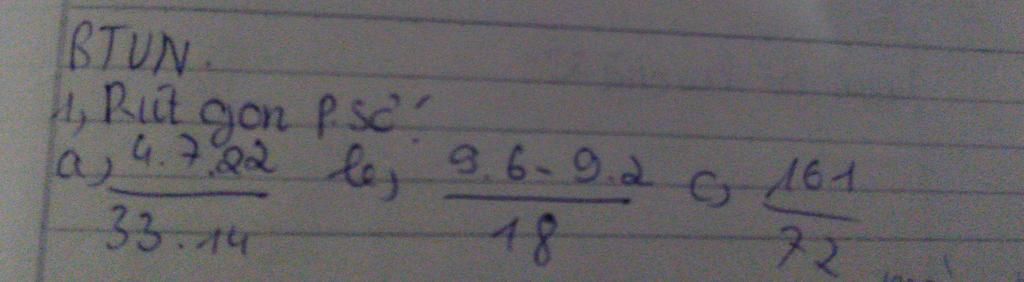 BTVN.
1, Rút gọn p.số:
a, 4.7.22 b, 9.6-9.2 c, 161
33.14 18 72